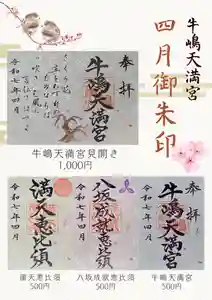 牛嶋天満宮
四月御朱印
奉拝
牛嶋天満宮
令和七年四月
牛嶋天満宮見開き
1,000円
満天恵比須
令和七年四月
八坂成就恵比須
令和七年四月
奉拝
牛嶋天満宮
令和七年四月
満天恵比須
500円
八坂成就恵比須
500円
牛嶋天満宮
500円